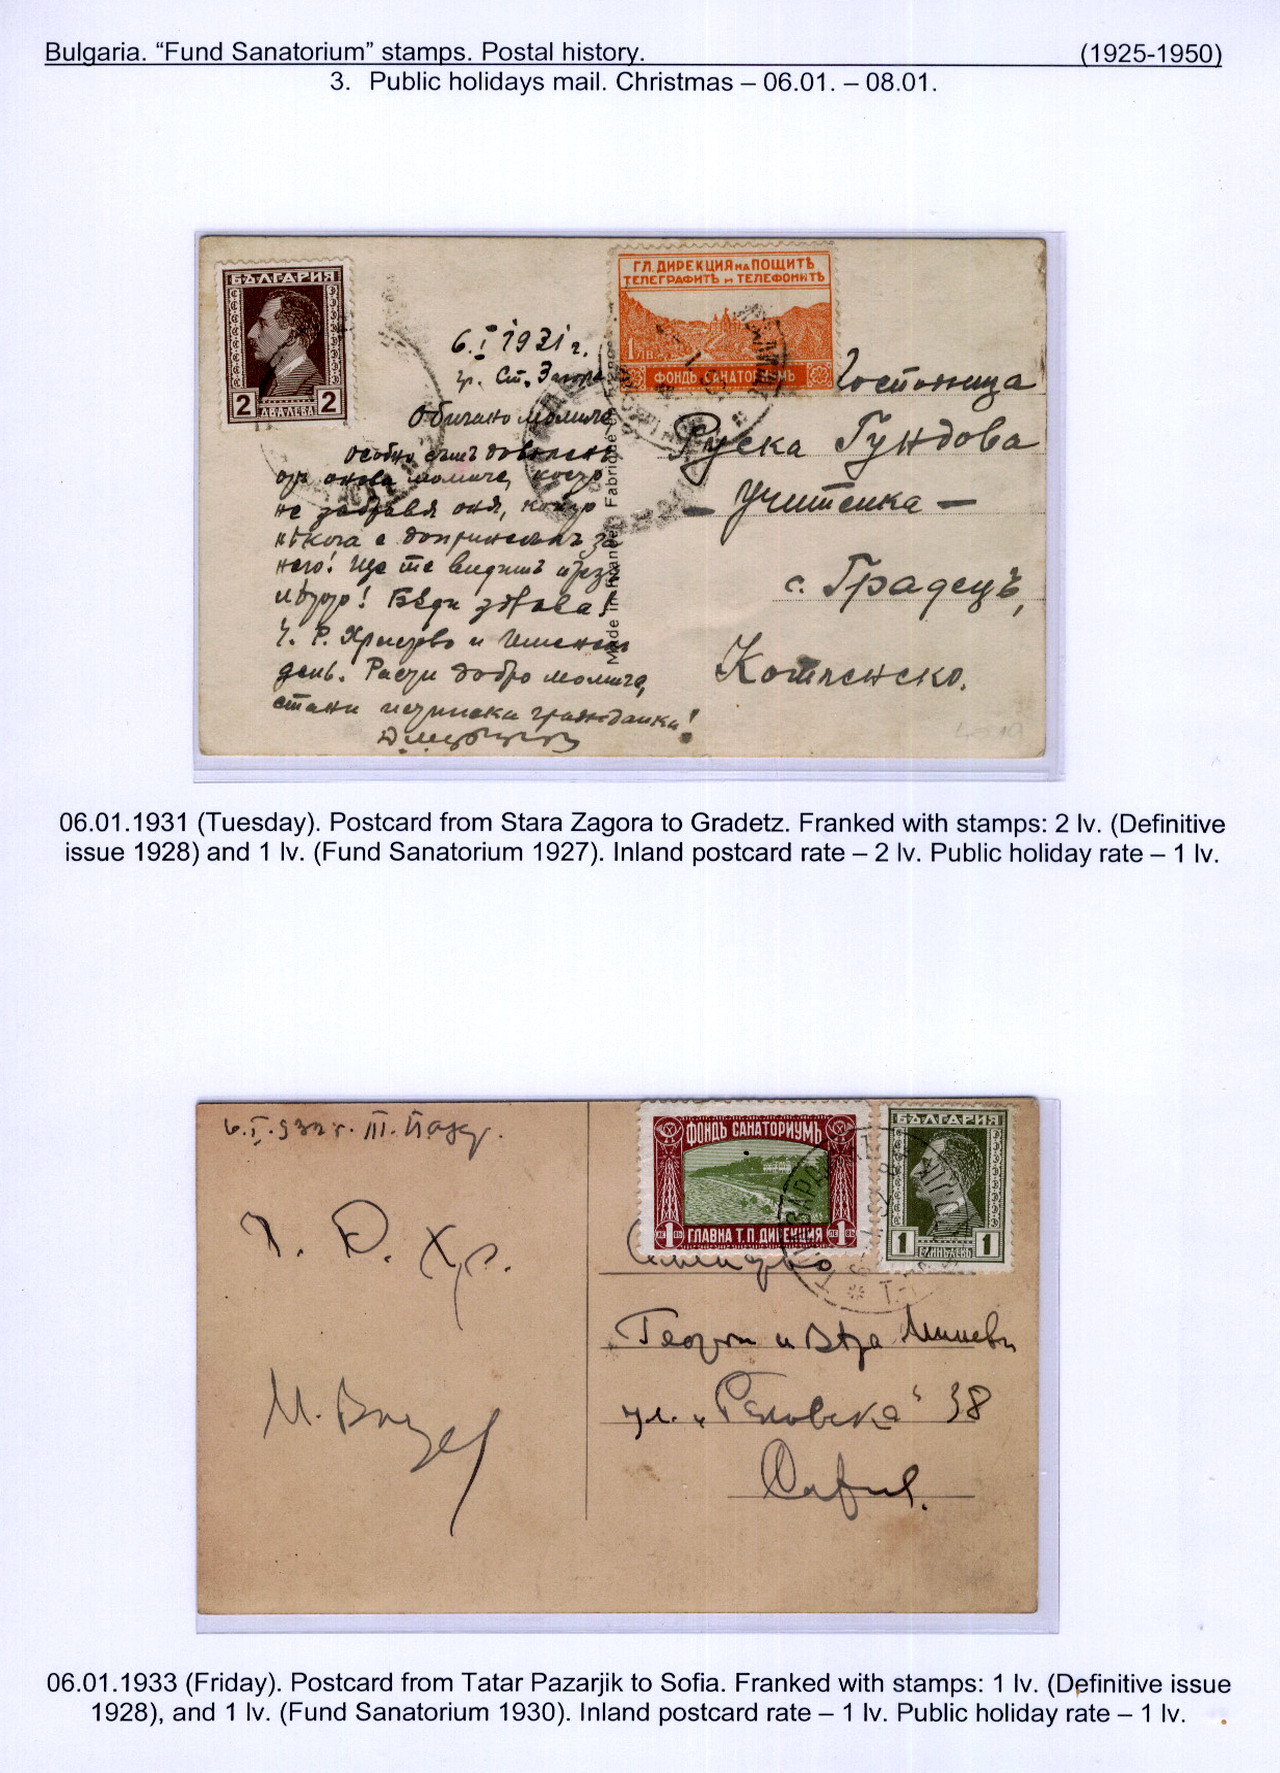 Bulgaria. “Fund Sanatorium” stamps. Postal history. (1925-1950)
3. Public holidays mail. Christmas – 06.01. – 08.01.
БЪЛГАРИЯ
2 ДВА ЛЕВА 2
ГЛ. ДИРЕКЦИЯ НА ПОЩИТѢ
ТЕЛЕГРАФИТѢ И ТЕЛЕФОНИТѢ
1 ЛВ.
ФОНДЪ САНАТОРИУМЪ
6. I 1931 г.
гр. Ст. Загора
Обичано момиче
особно съмъ доволенъ
отъ онова момиче, което
не забравя оня, който
нѣкога е допринесълъ за
него! Ще те видимъ презъ
лѣтото! Бѫди здрава!
Ч. Р. Христово и Именни
день. Расти добро момиче,
стани истинска гражданка!
Made in France Fabriqué
Госпожица
Руска Гундова
– Учителка –
с. Градецъ,
Котленско.
4019
06.01.1931 (Tuesday). Postcard from Stara Zagora to Gradetz. Franked with stamps: 2 lv. (Definitive
issue 1928) and 1 lv. (Fund Sanatorium 1927). Inland postcard rate – 2 lv. Public holiday rate – 1 lv.
ФОНДЪ САНАТОРИУМЪ
1 ЛЕВЪ ГЛАВНА Т.П. ДИРЕКЦИЯ ЛЕВЪ 1
БЪЛГАРИЯ
1 ЕДИНЪ ЛЕВЪ 1
Ч. Р. Хр.
Георги и Вѣра
ул. „ 38
София.
06.01.1933 (Friday). Postcard from Tatar Pazarjik to Sofia. Franked with stamps: 1 lv. (Definitive issue
1928), and 1 lv. (Fund Sanatorium 1930). Inland postcard rate – 1 lv. Public holiday rate – 1 lv.